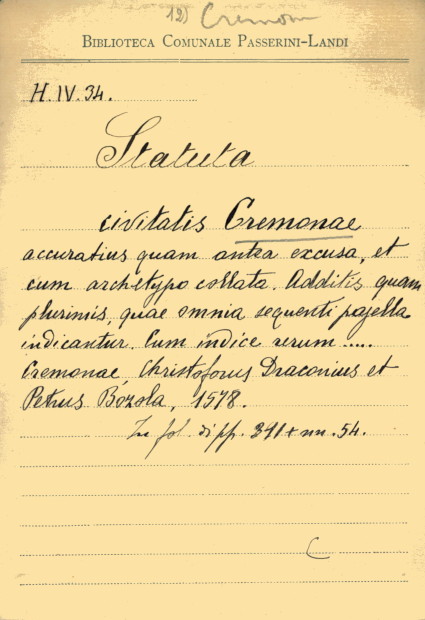 12) Cremona
BIBLIOTECA COMUNALE PASSERINI-LANDI
H. IV. 34.
Statuta
civitatis Cremonae
accuratius quam antea excusa, et
cum archetypo collata. Additis quam
plurimis, quae omnia sequenti pagella
indicantur. Cum indice rerum .....
Cremonae, Christoforus Draconius et
Petrus Bózola, 1578.
In fol. di pp. 341 + nn. 54.
C